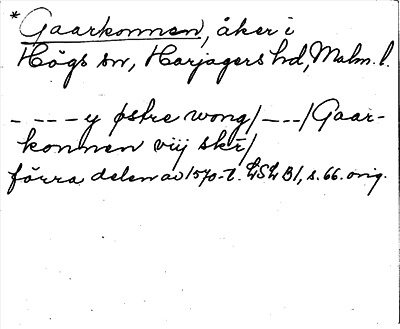 *Gaarkonnen, åker i
Högs sn, Harjagers hd, Malm. l.
- - - - y østre wong/- - -/Gaar-
konnen viij skr/
förra delen av 1570-t. LSLB1, s. 66. orig.